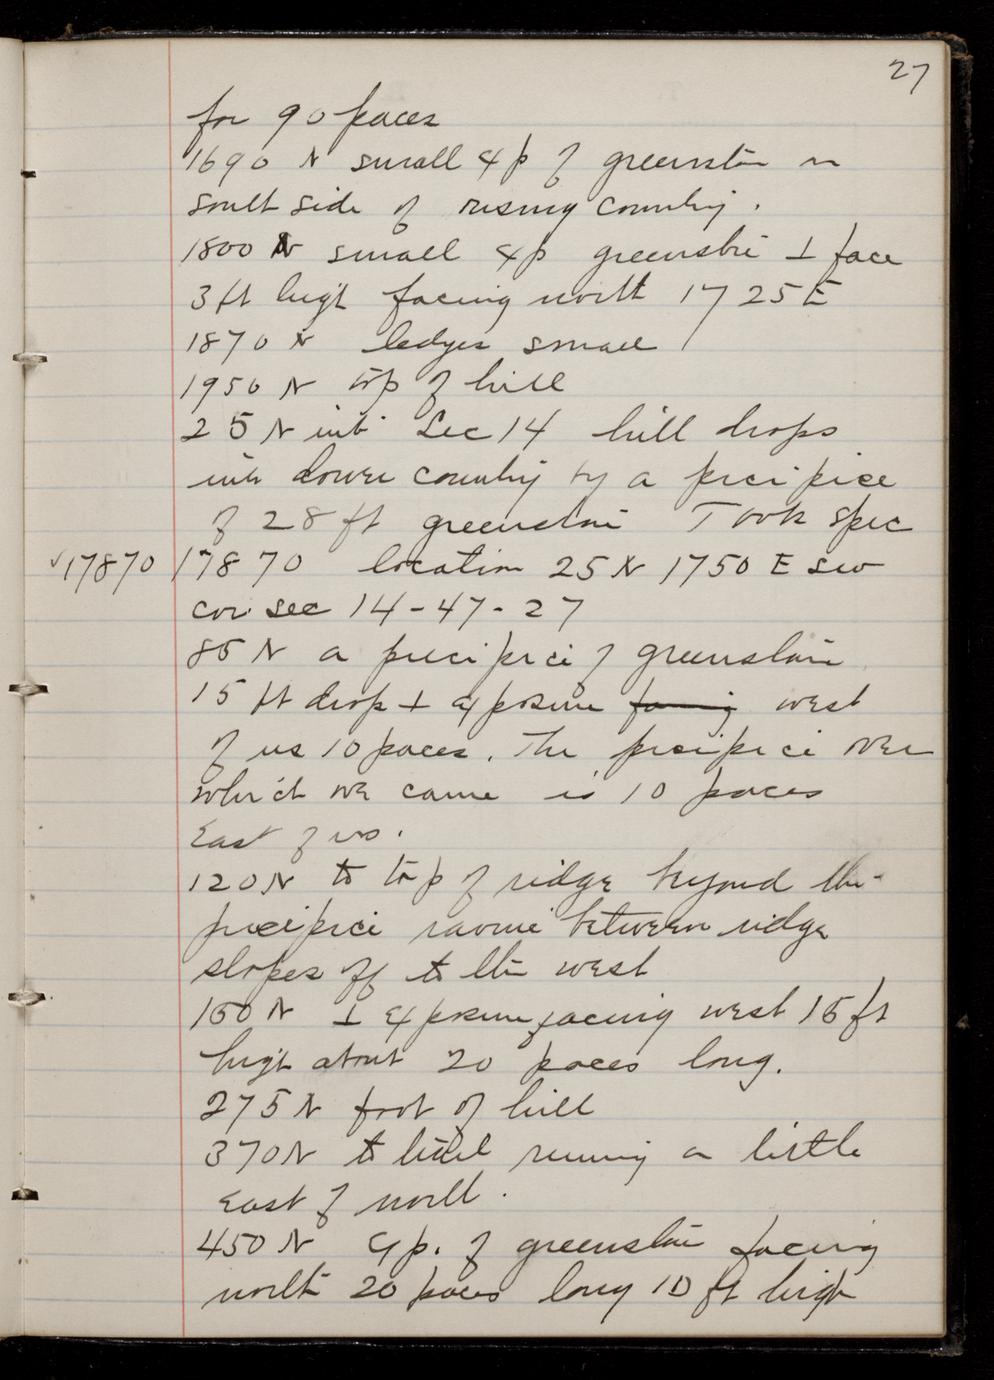 27
for 90 paces
1690 N small exp of greenstone on
south side of rising country.
1800 N small exp greenstone ⊥ face
3 ft high facing north 1725 E
1870 N ledges small
1950 N top of hill
25 N into Sec 14 hill drops
into lower country by a precipice
of 28 ft greenstone Took spec
✓17870 17870 location 25 N 1750 E SW
cor. sec 14-47-27
85 N a precipice of greenstone
15 ft drop ⊥ exposure facing west
of us 10 paces. The precipice over
which we came is 10 paces
East of us.
120 N to top of ridge beyond the
precipice ravine between ridge
slopes off to the west
150 N ⊥ exposure facing west 15 ft
high about 20 paces long.
275 N foot of hill
370 N to running a little
East of north.
450 N exp. of greenstone facing
north 20 paces long 10 ft high